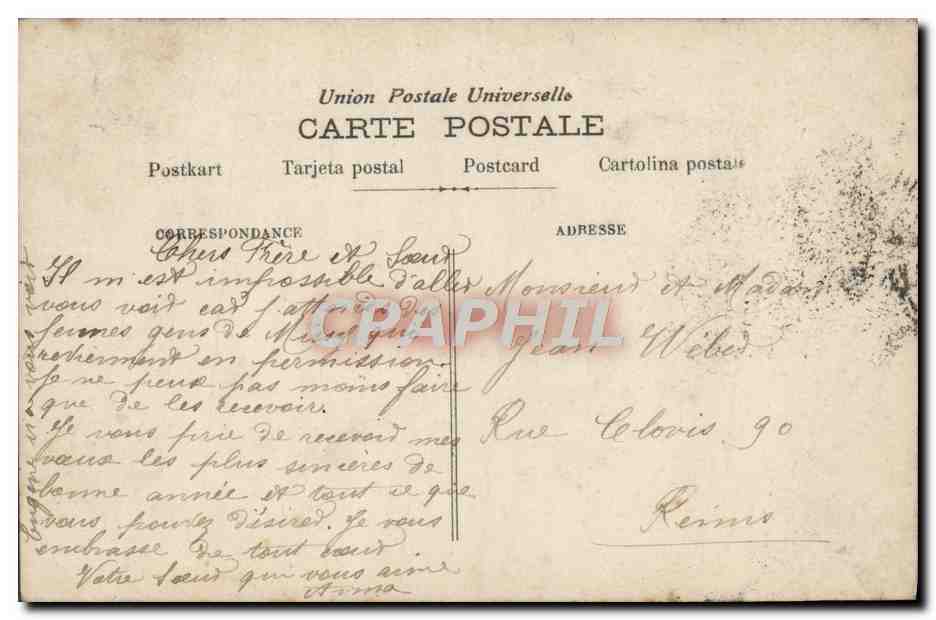 Union Postale Universelle
CARTE POSTALE
Postkart Tarjeta postal Postcard Cartolina postale
CORRESPONDANCE
ADRESSE
Chers Frère et Sœur
Il m'est impossible d'aller
vous voir car j'attends des
jeunes gens de qui
reviennent en permission.
Je ne peux pas moins faire
que de les recevoir.
Je vous prie de recevoir mes
vœux les plus sincères de
bonne année et tout ce que
vous pouvez désirer. Je vous
embrasse de tout cœur.
Votre Sœur qui vous aime
Anna
Eugène ira vous voir
Monsieur et Madame
Jean Wéber
Rue Clovis 90
Reims
CPAPHIL